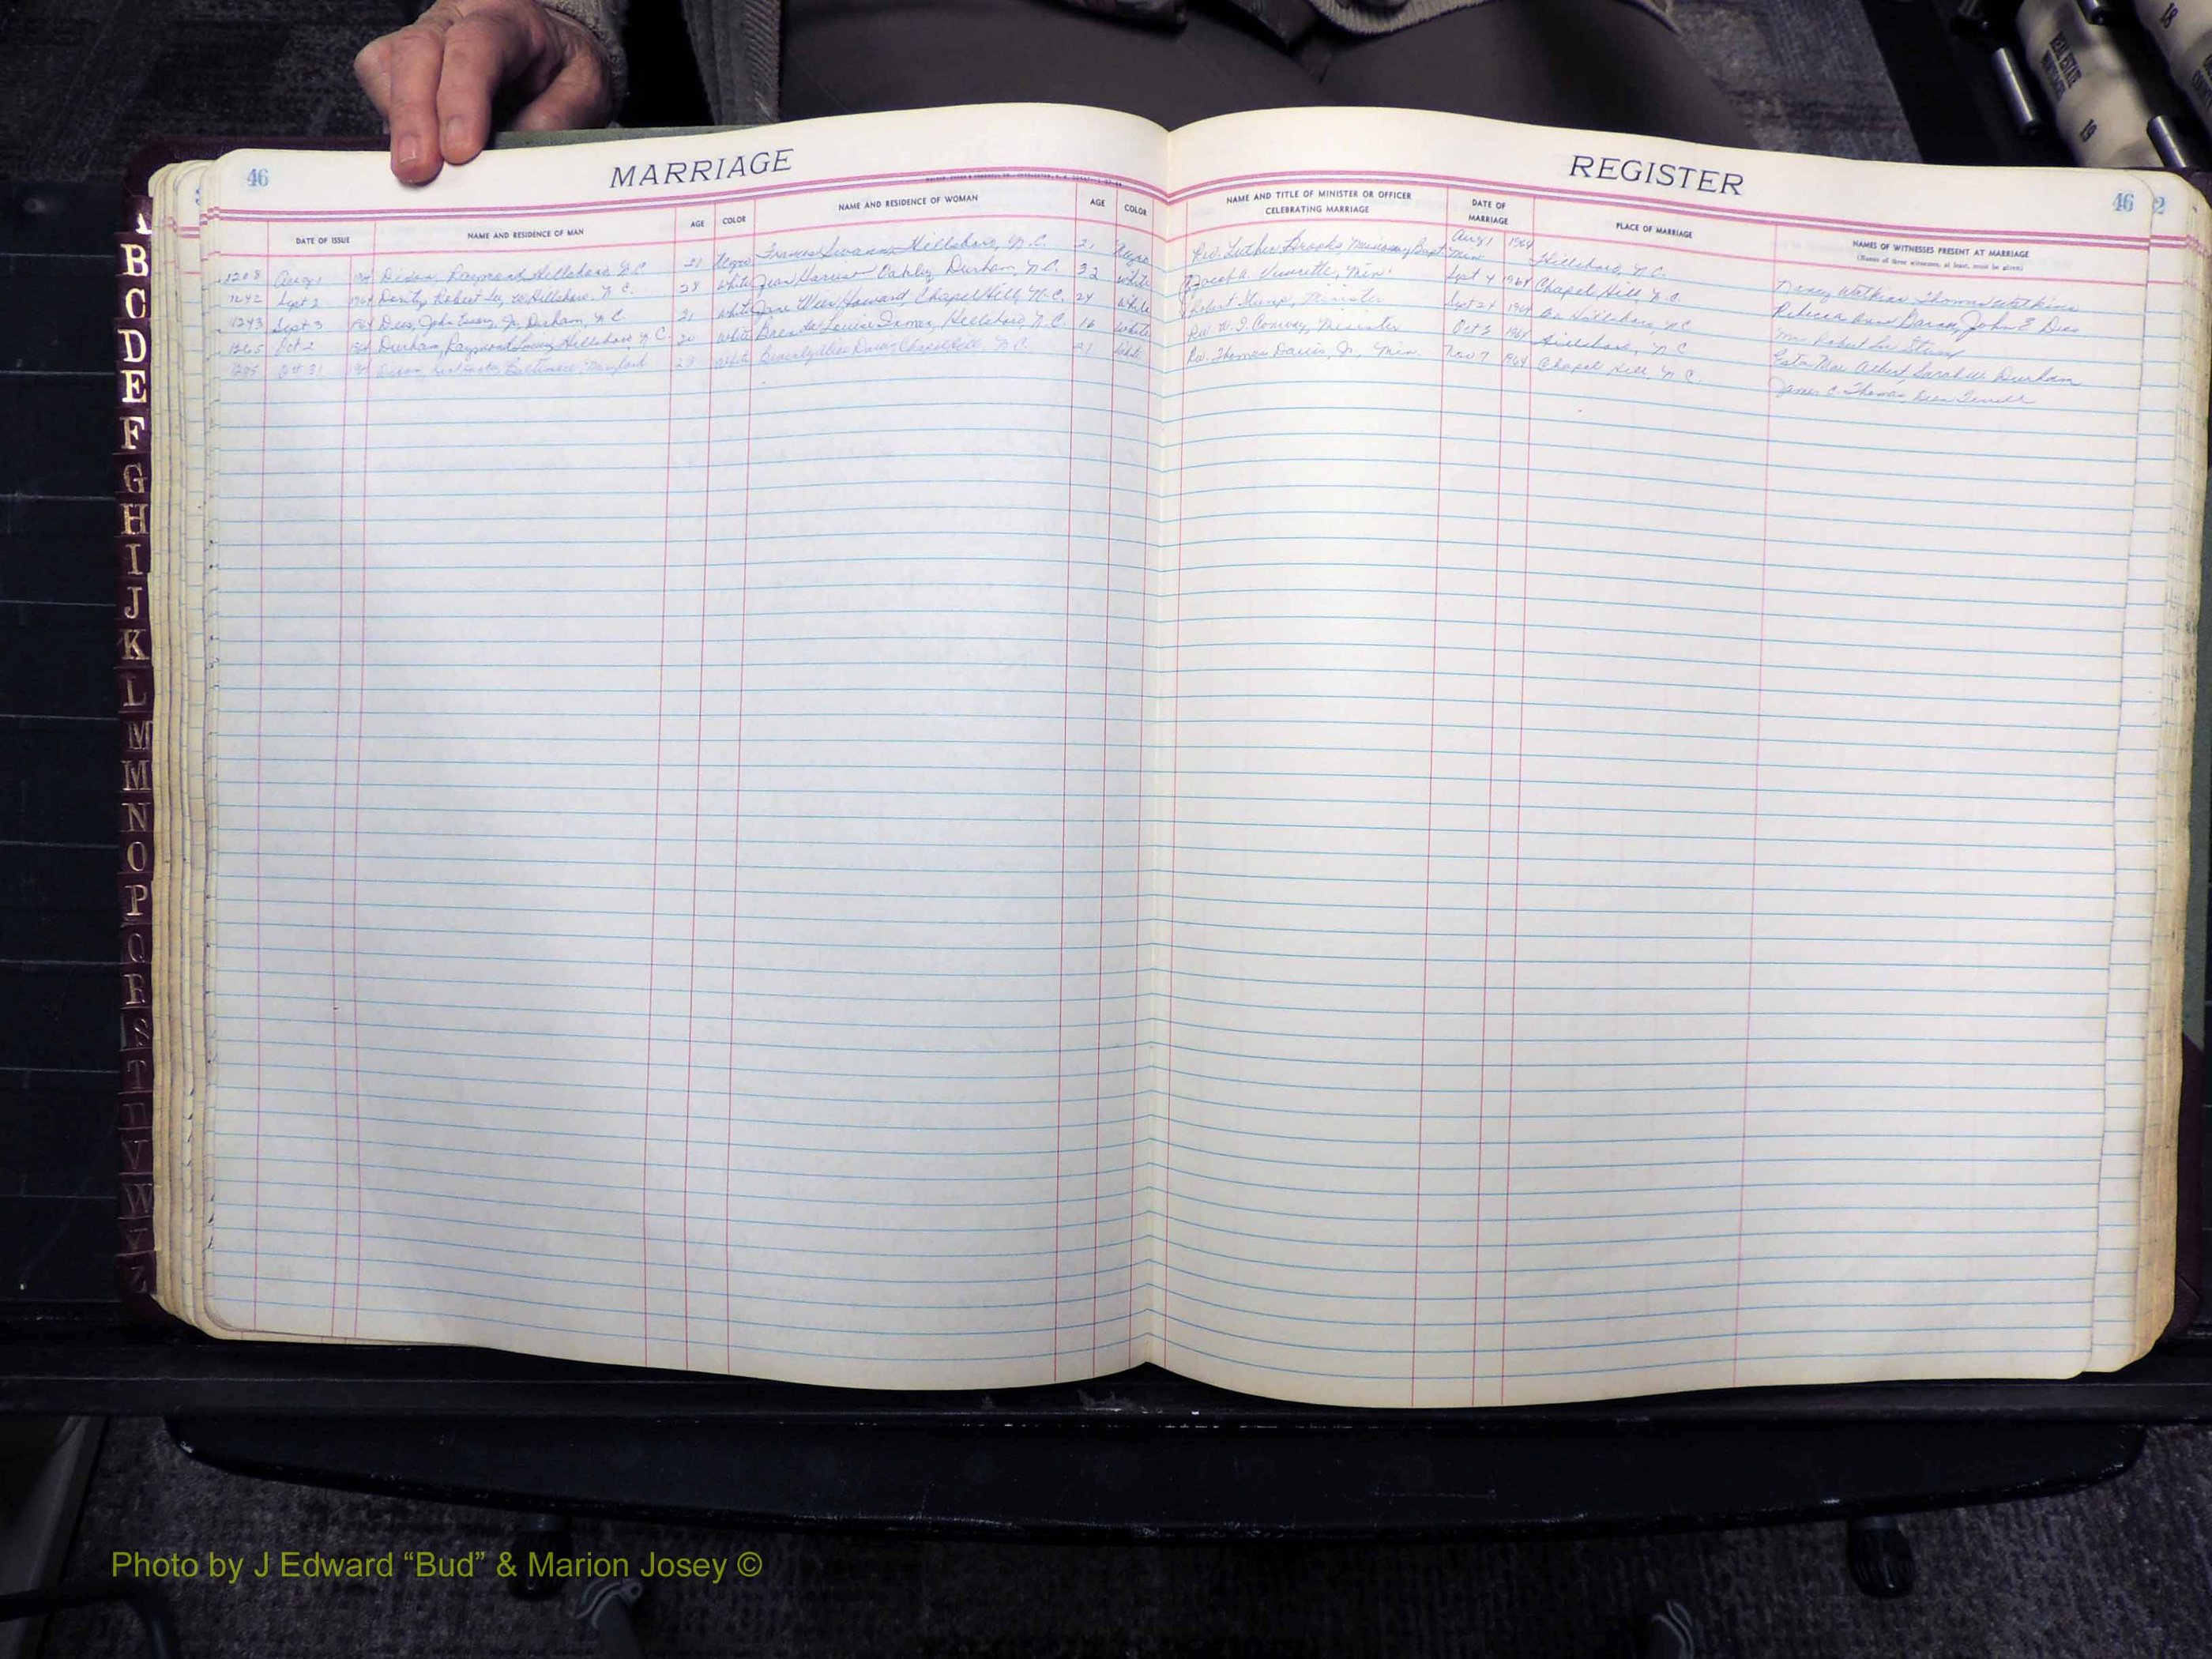 46 MARRIAGE REGISTER 46 2
DATE OF ISSUE NAME AND RESIDENCE OF MAN AGE COLOR NAME AND RESIDENCE OF WOMAN AGE COLOR NAME AND TITLE OF MINISTER OR OFFICER CELEBRATING MARRIAGE DATE OF MARRIAGE PLACE OF MARRIAGE NAMES OF WITNESSES PRESENT AT MARRIAGE
(Names of three witnesses, at least, must be given)
1208 Aug 1 1964 Dixon, Raymond, Hillsboro, N.C. 21 Negro Frances Swann, Hillsboro, N.C. 21 Negro Rev. Luther Brooks, Missionary Bapt. Min Aug 1 1964 Hillsboro, N.C. Nancy Watkins Thomas Watkins
1242 Sept 2 1964 Dority, Robert Lee, Hillsboro, N.C. 28 White Jean Oakley, Durham, N.C. 32 White Joseph A. Min. Sept 4 1964 Chapel Hill, N.C. Rebecca Anne John E Dees
1243 Sept 3 1964 Dees, John Jr, Durham, N.C. 21 White Jane Howard Chapel Hill, N.C. 24 White Robert Minister Sept 24 1964 Hillsboro, N.C. Mrs Robert
1265 Oct 2 1964 Durham, Raymond Hillsboro, N.C. 20 White Brenda Louise Hillsboro, N.C. 16 White Rev. W. I. Conway, Minister Oct 3 1964 Hillsboro, N.C. Mae Albert, Sarah W. Durham
1295 Oct 31 1964 Baltimore, Maryland 23 White Beverly Chapel Hill, N.C. 21 White Rev. Thomas Davis, Jr., Min. Nov 7 1964 Chapel Hill, N.C. James C. Thomas,
B
C
D
E
F
G
H
I
J
K
L
M
M
N
O
P
Q
R
S
T
U
V
W
Z
REAL ESTATE
18
19
Photo by J Edward “Bud” & Marion Josey ©